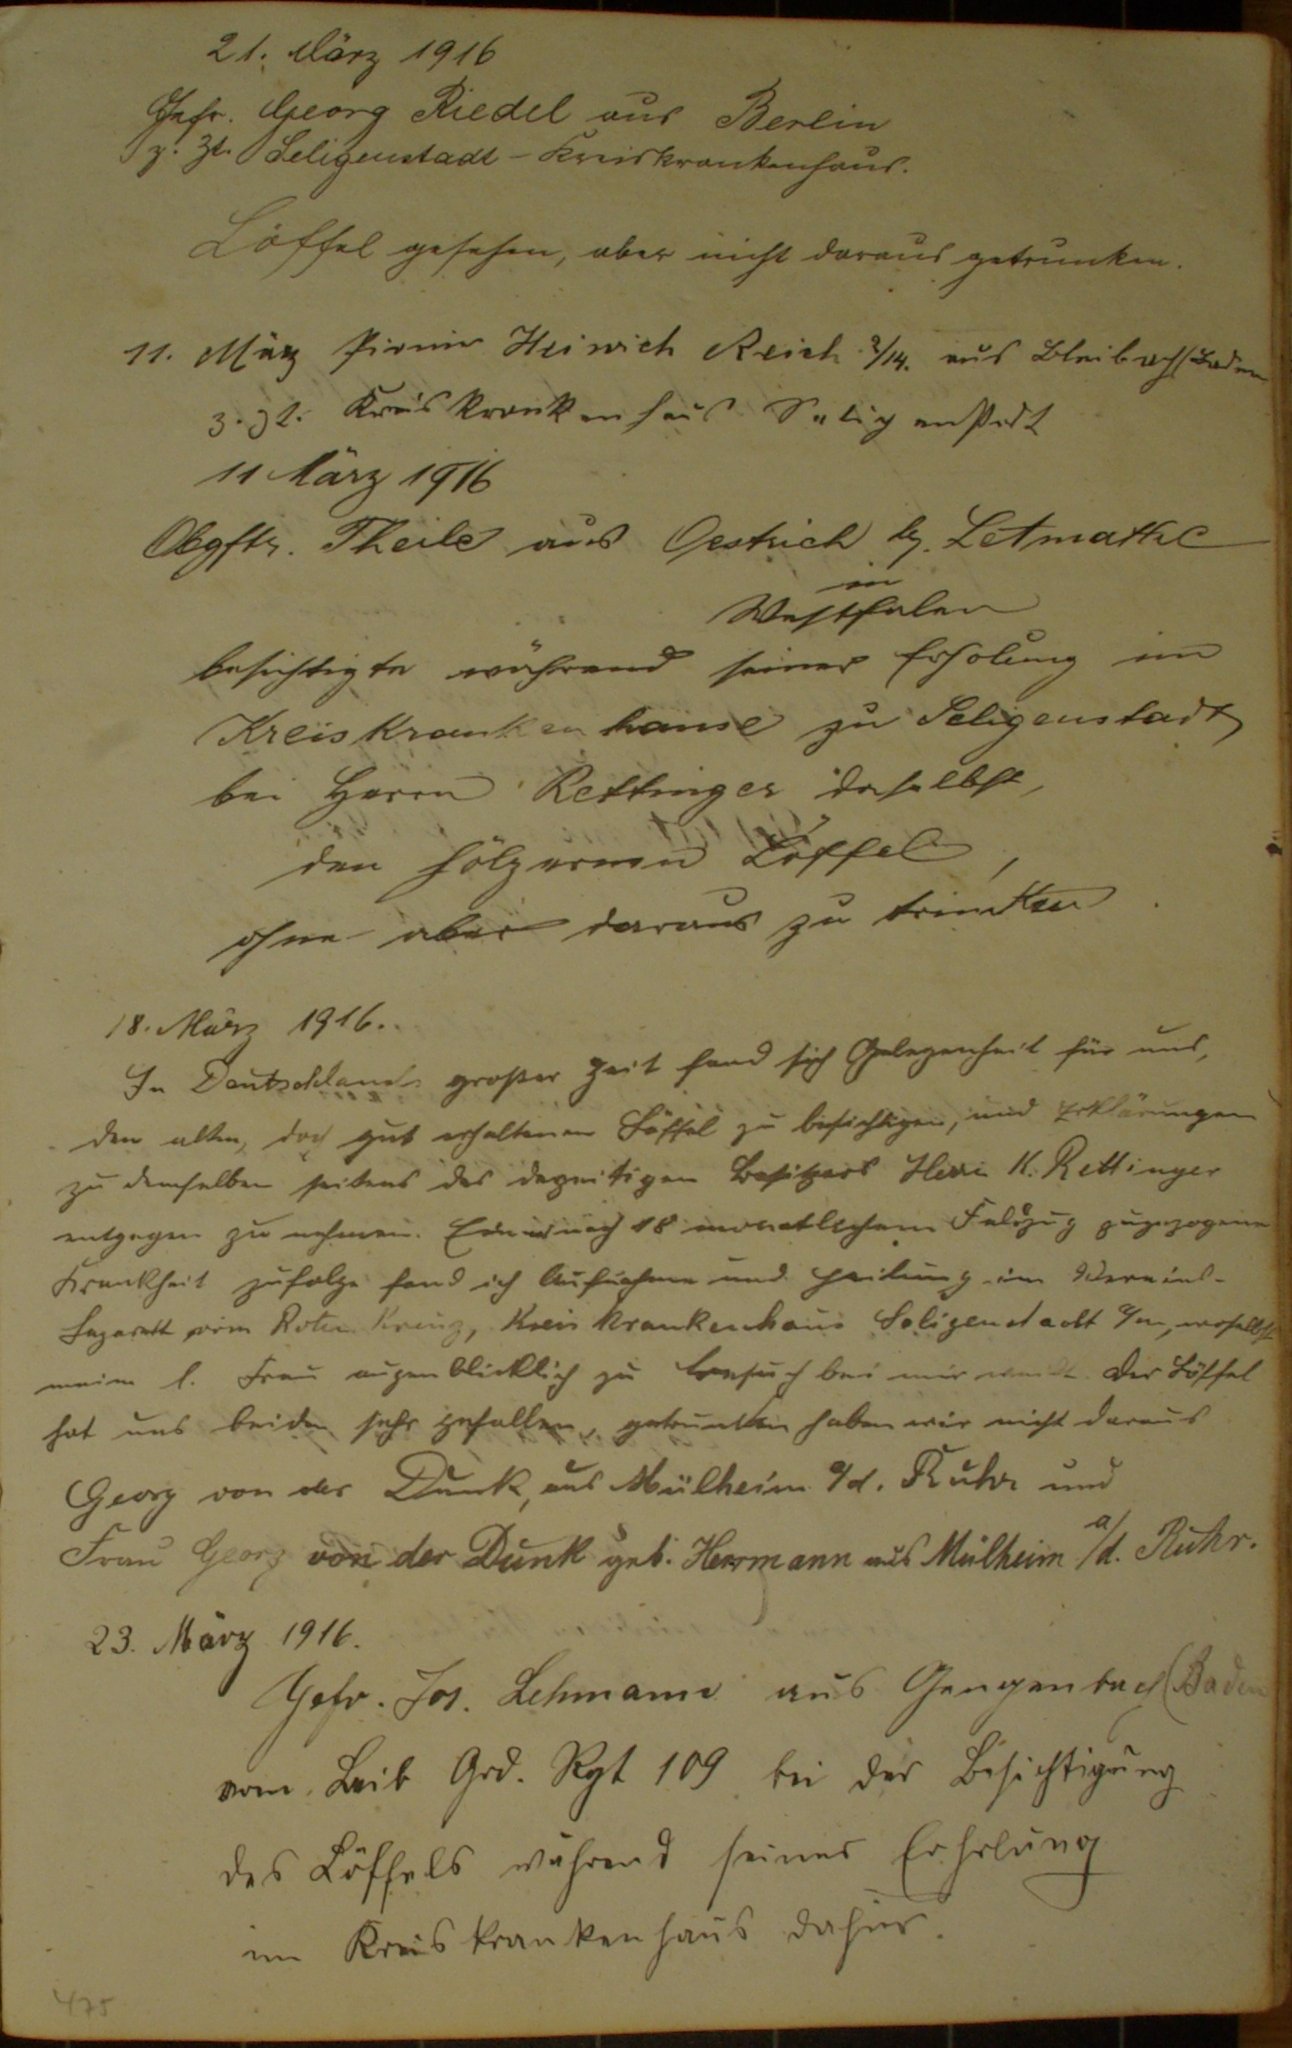 21. März 1916
Gefr. Georg Riedel aus Berlin
z. Zt. Seligenstadt - Kreiskrankenhaus.
Löffel gesehen, aber nicht daraus getrunken.
11. März Pionier Heinrich Reich 2/14. aus Bleibach/Baden
z. Zt. Kreiskrankenhaus Seligenstadt
11 März 1916
Obgftr. Theile aus Oestrich bz. Letmathe
in
Westfalen
besichtigte während seiner Erholung im
Kreiskrankenhause zu Seligenstadt
bei Herrn Rettinger daselbst,
den hölzernen Löffel,
ohne aber daraus zu trinken.
18. März 1916.
In Deutschlands großer Zeit fand sich Gelegenheit für uns,
den alten, doch gut erhaltenen Löffel zu besichtigen, und Erklärungen
zu demselben seitens des derzeitigen Besitzers Herrn K. Rettinger
entgegen zu nehmen. Einer nach 18 monatlichem Feldzug zugezogene
Krankheit zufolge fand ich Aufnahme und Heilung im Vereins-
Lazarett vom Roten Kreuz, Kreiskrankenhaus Seligenstadt a/m, woselbst
meine l. Frau augenblicklich zu Besuch bei mir weilt. Der Löffel
hat uns beiden sehr gefallen, getrunken haben wir nicht daraus
Georg von der Dunk, aus Mülheim a/d. Ruhr und
Frau Georg von der Dunk geb. Herrmann aus Mülheim a/d. Ruhr.
23. März 1916.
Gefr. Jos. Lehmann aus Gengenbach (Baden
vom Leib Grd. Rgt 109 bei der Besichtigung
des Löffels während seiner Erholung
im Kreiskrankenhaus dahier.
475